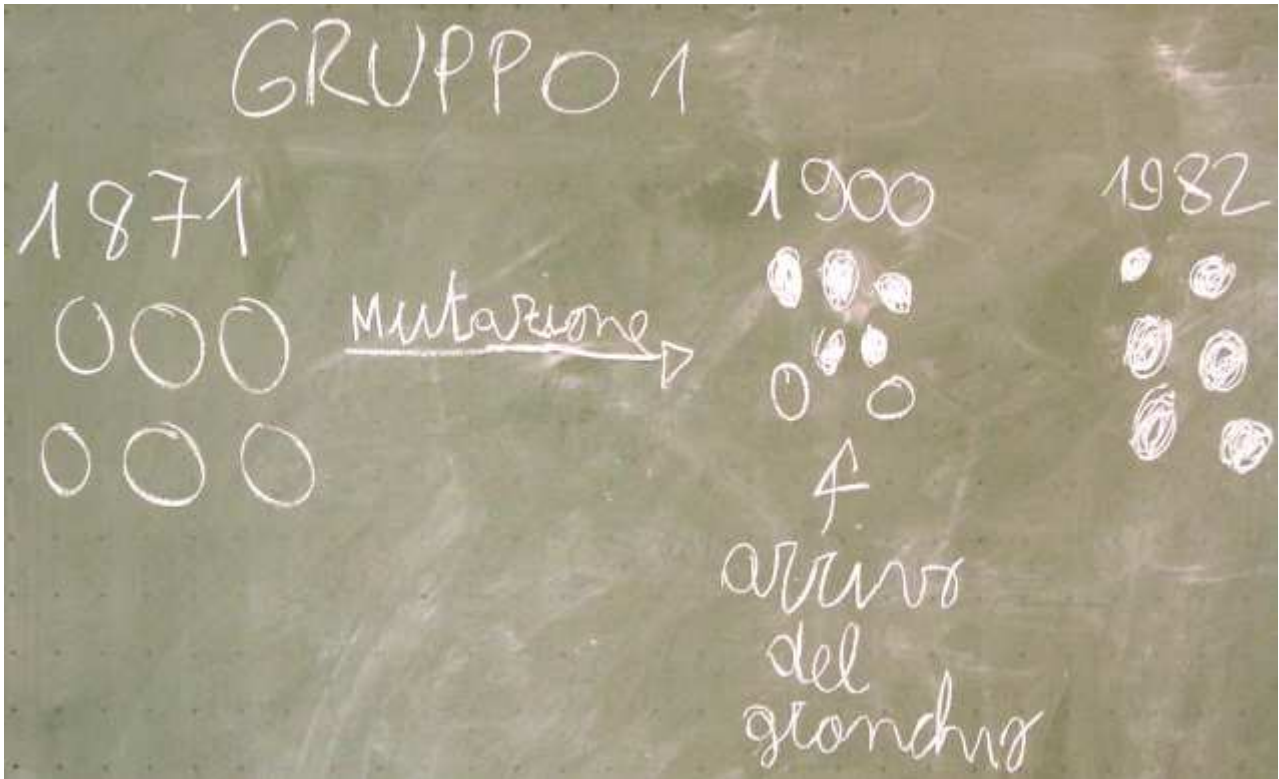 GRUPPO 1
1871
Mutazione
1900
1982
arrivo
del
granchio